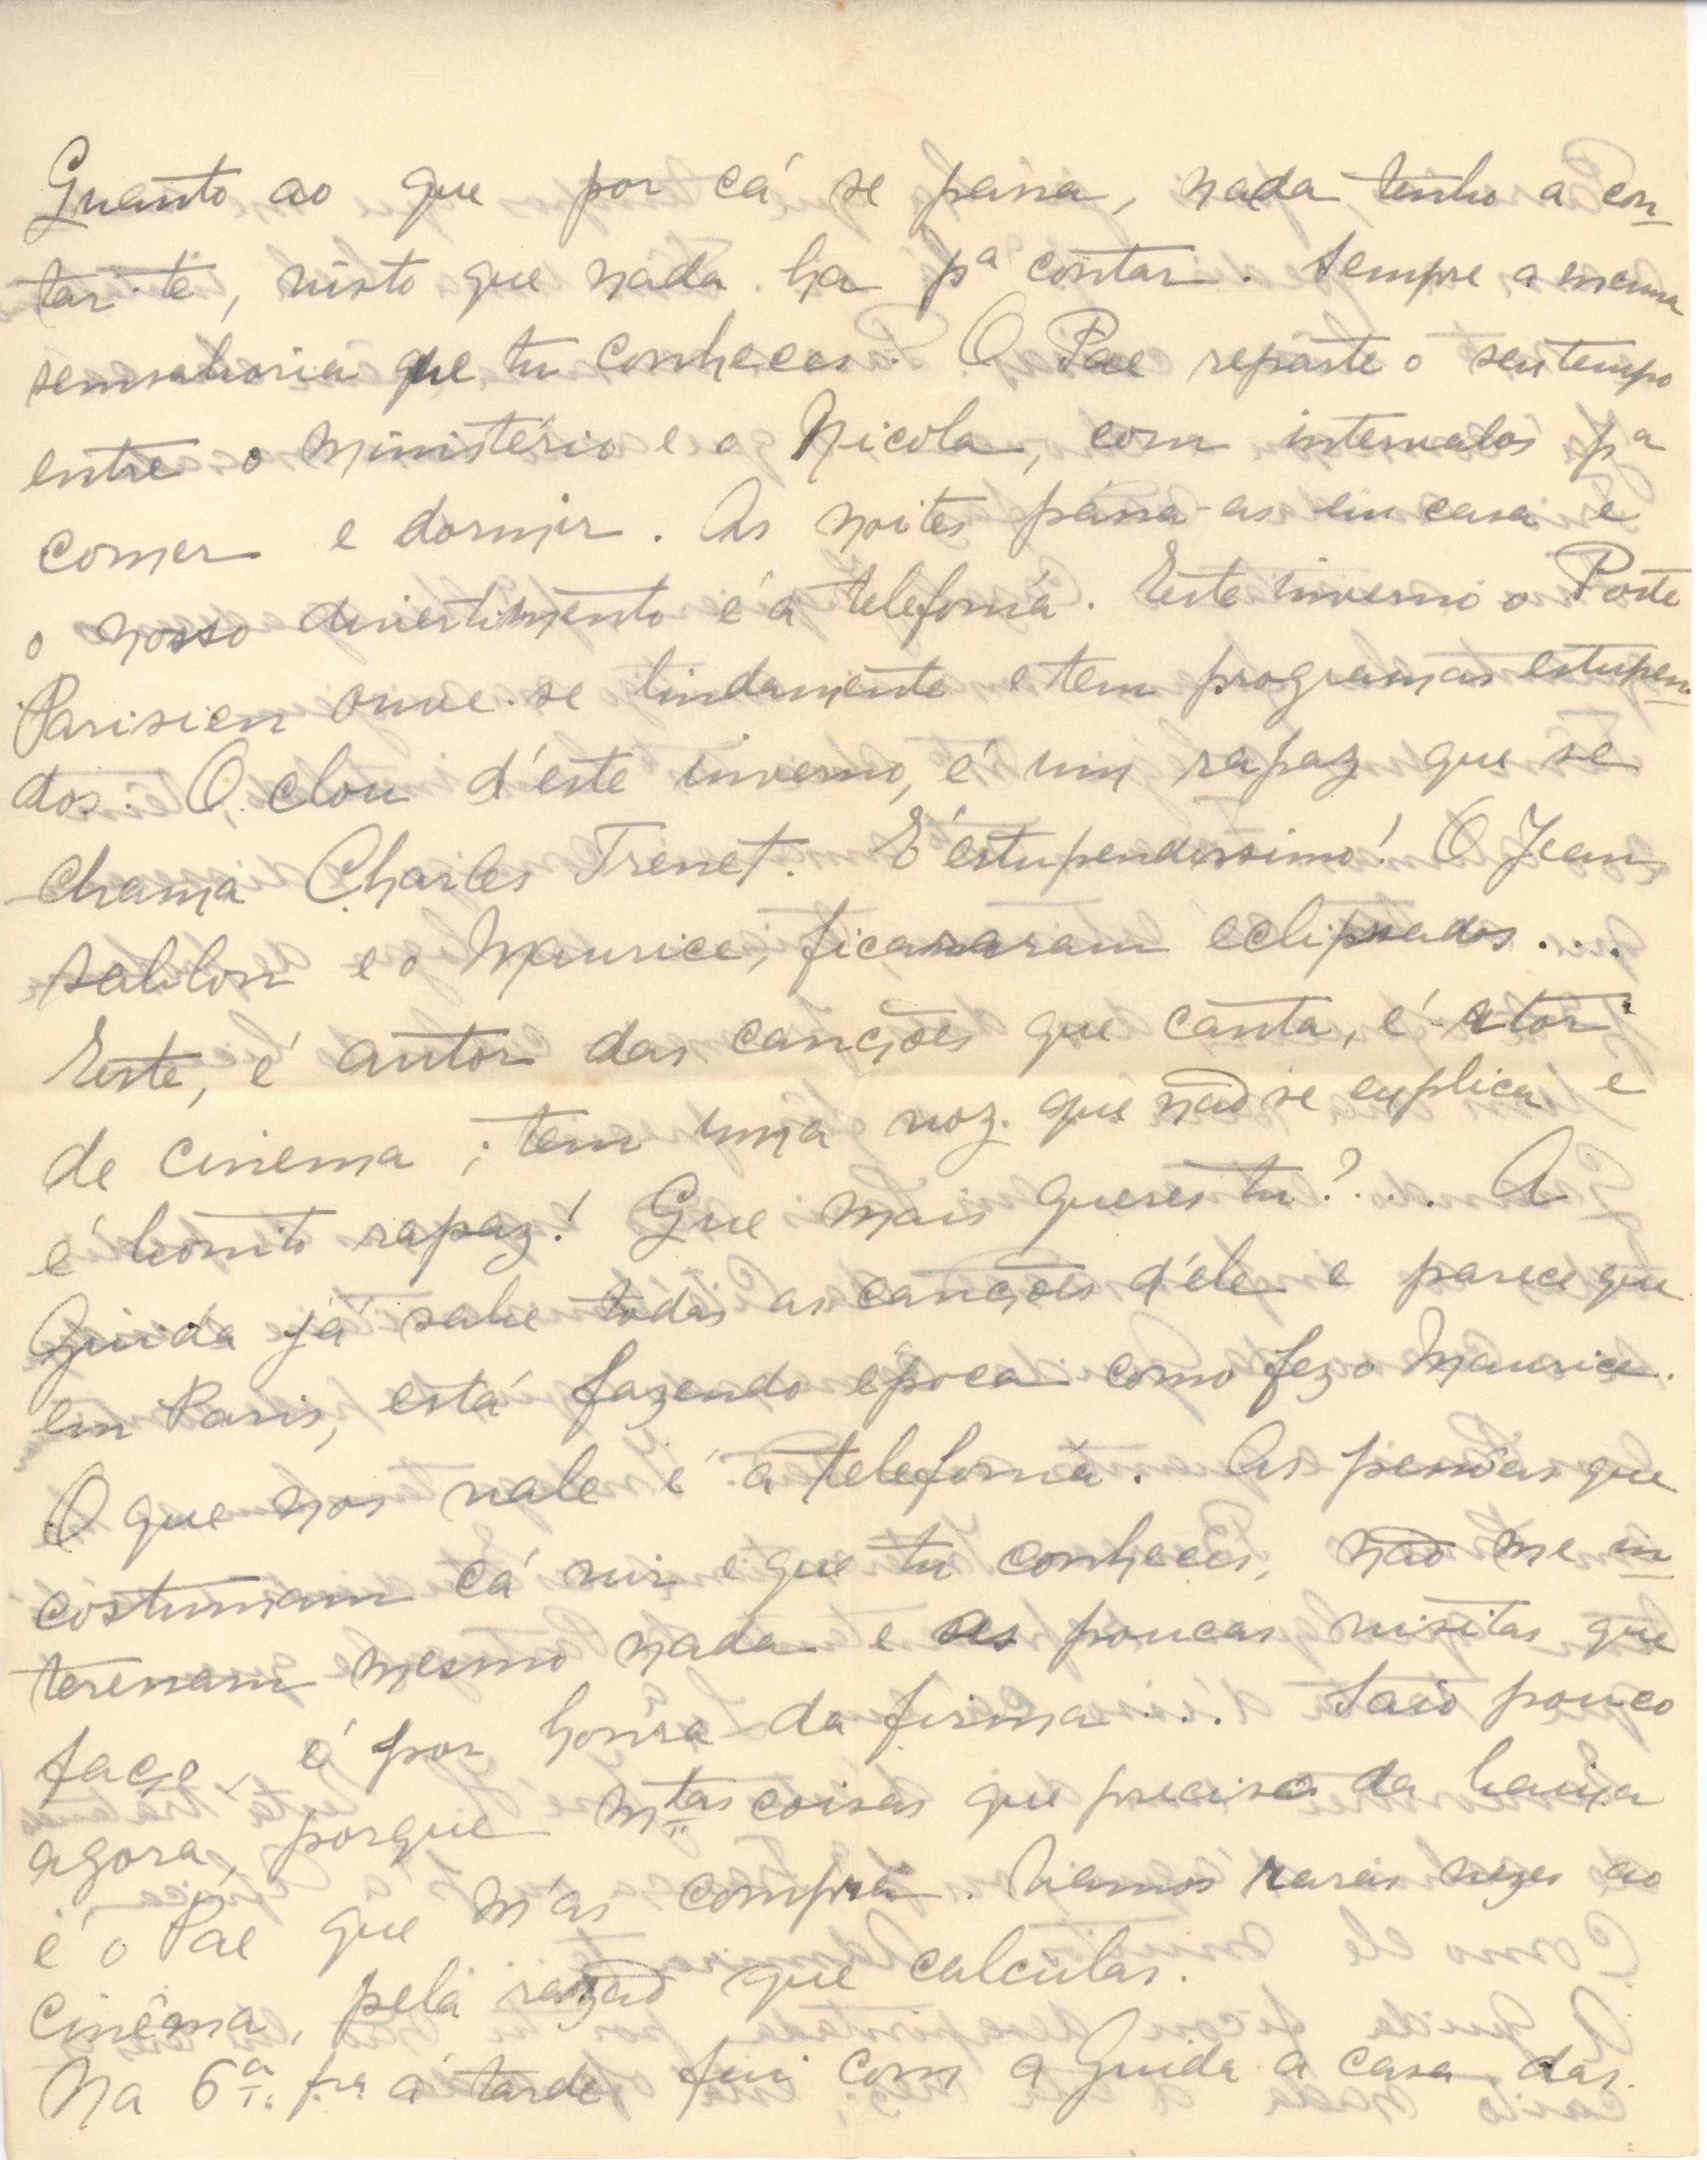 Quanto ao que por cá se passa, nada tenho a con-
tar-te, visto que nada ha pª contar. Sempre a mesma
semsaboria que tu conheces. O Pae reparte o seu tempo
entre o Ministério e o Nicola, com intervalos pª
comer e dormir. As noites passa-as em casa e
o nosso divertimento é a telefonia. Este inverno o Poste
Parisien ouve-se lindamente e tem programas estupen-
dos. O clou d'este inverno, é um rapaz que se
chama Charles Trenet. E' estupendissimo! O Jean
Sablon e o Maurice, ficaram eclipsados...
Este, é autor das canções que canta, é ator
de cinema; tem uma voz que não se explica e
é bonito rapaz! Que mais queres tu?... A
Guida já sabe todas as canções d'éle e parece que
em Paris, está fazendo época como fez o Maurice.
O que nos vale é a telefonia. As pessôas que
costumam cá vir e que tu conheces, não me in-
teressam mesmo nada e as poucas visitas que
faço, é por honra da firma... Saio pouco
agora, porque mtas coisas que preciso da baixa
é o Pae que m'as compra. Vamos raras vezes ao
cinêma, pela razão que calculas.
Na 6ª fra á tarde fui com a Guida a casa das